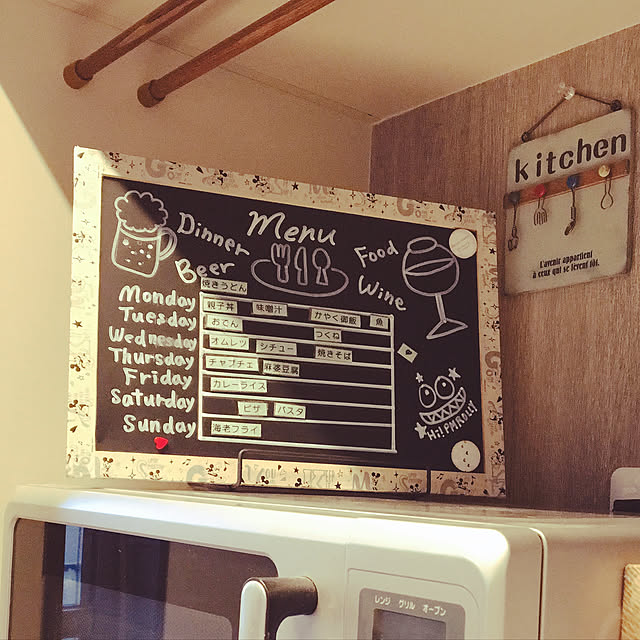 kitchen
L'avenir appartient
à ceux qui se lèvent tôt.
Menu
Dinner
Beer
Food
Wine
焼きうどん
Monday 親子丼 味噌汁 かやく御飯 魚
Tuesday おでん つくね
Wednesday オムレツ シチュー 焼きそば
Thursday チャプチェ 麻婆豆腐
Friday カレーライス
Saturday ピザ パスタ
Sunday 海老フライ
レンジ グリル オーブン